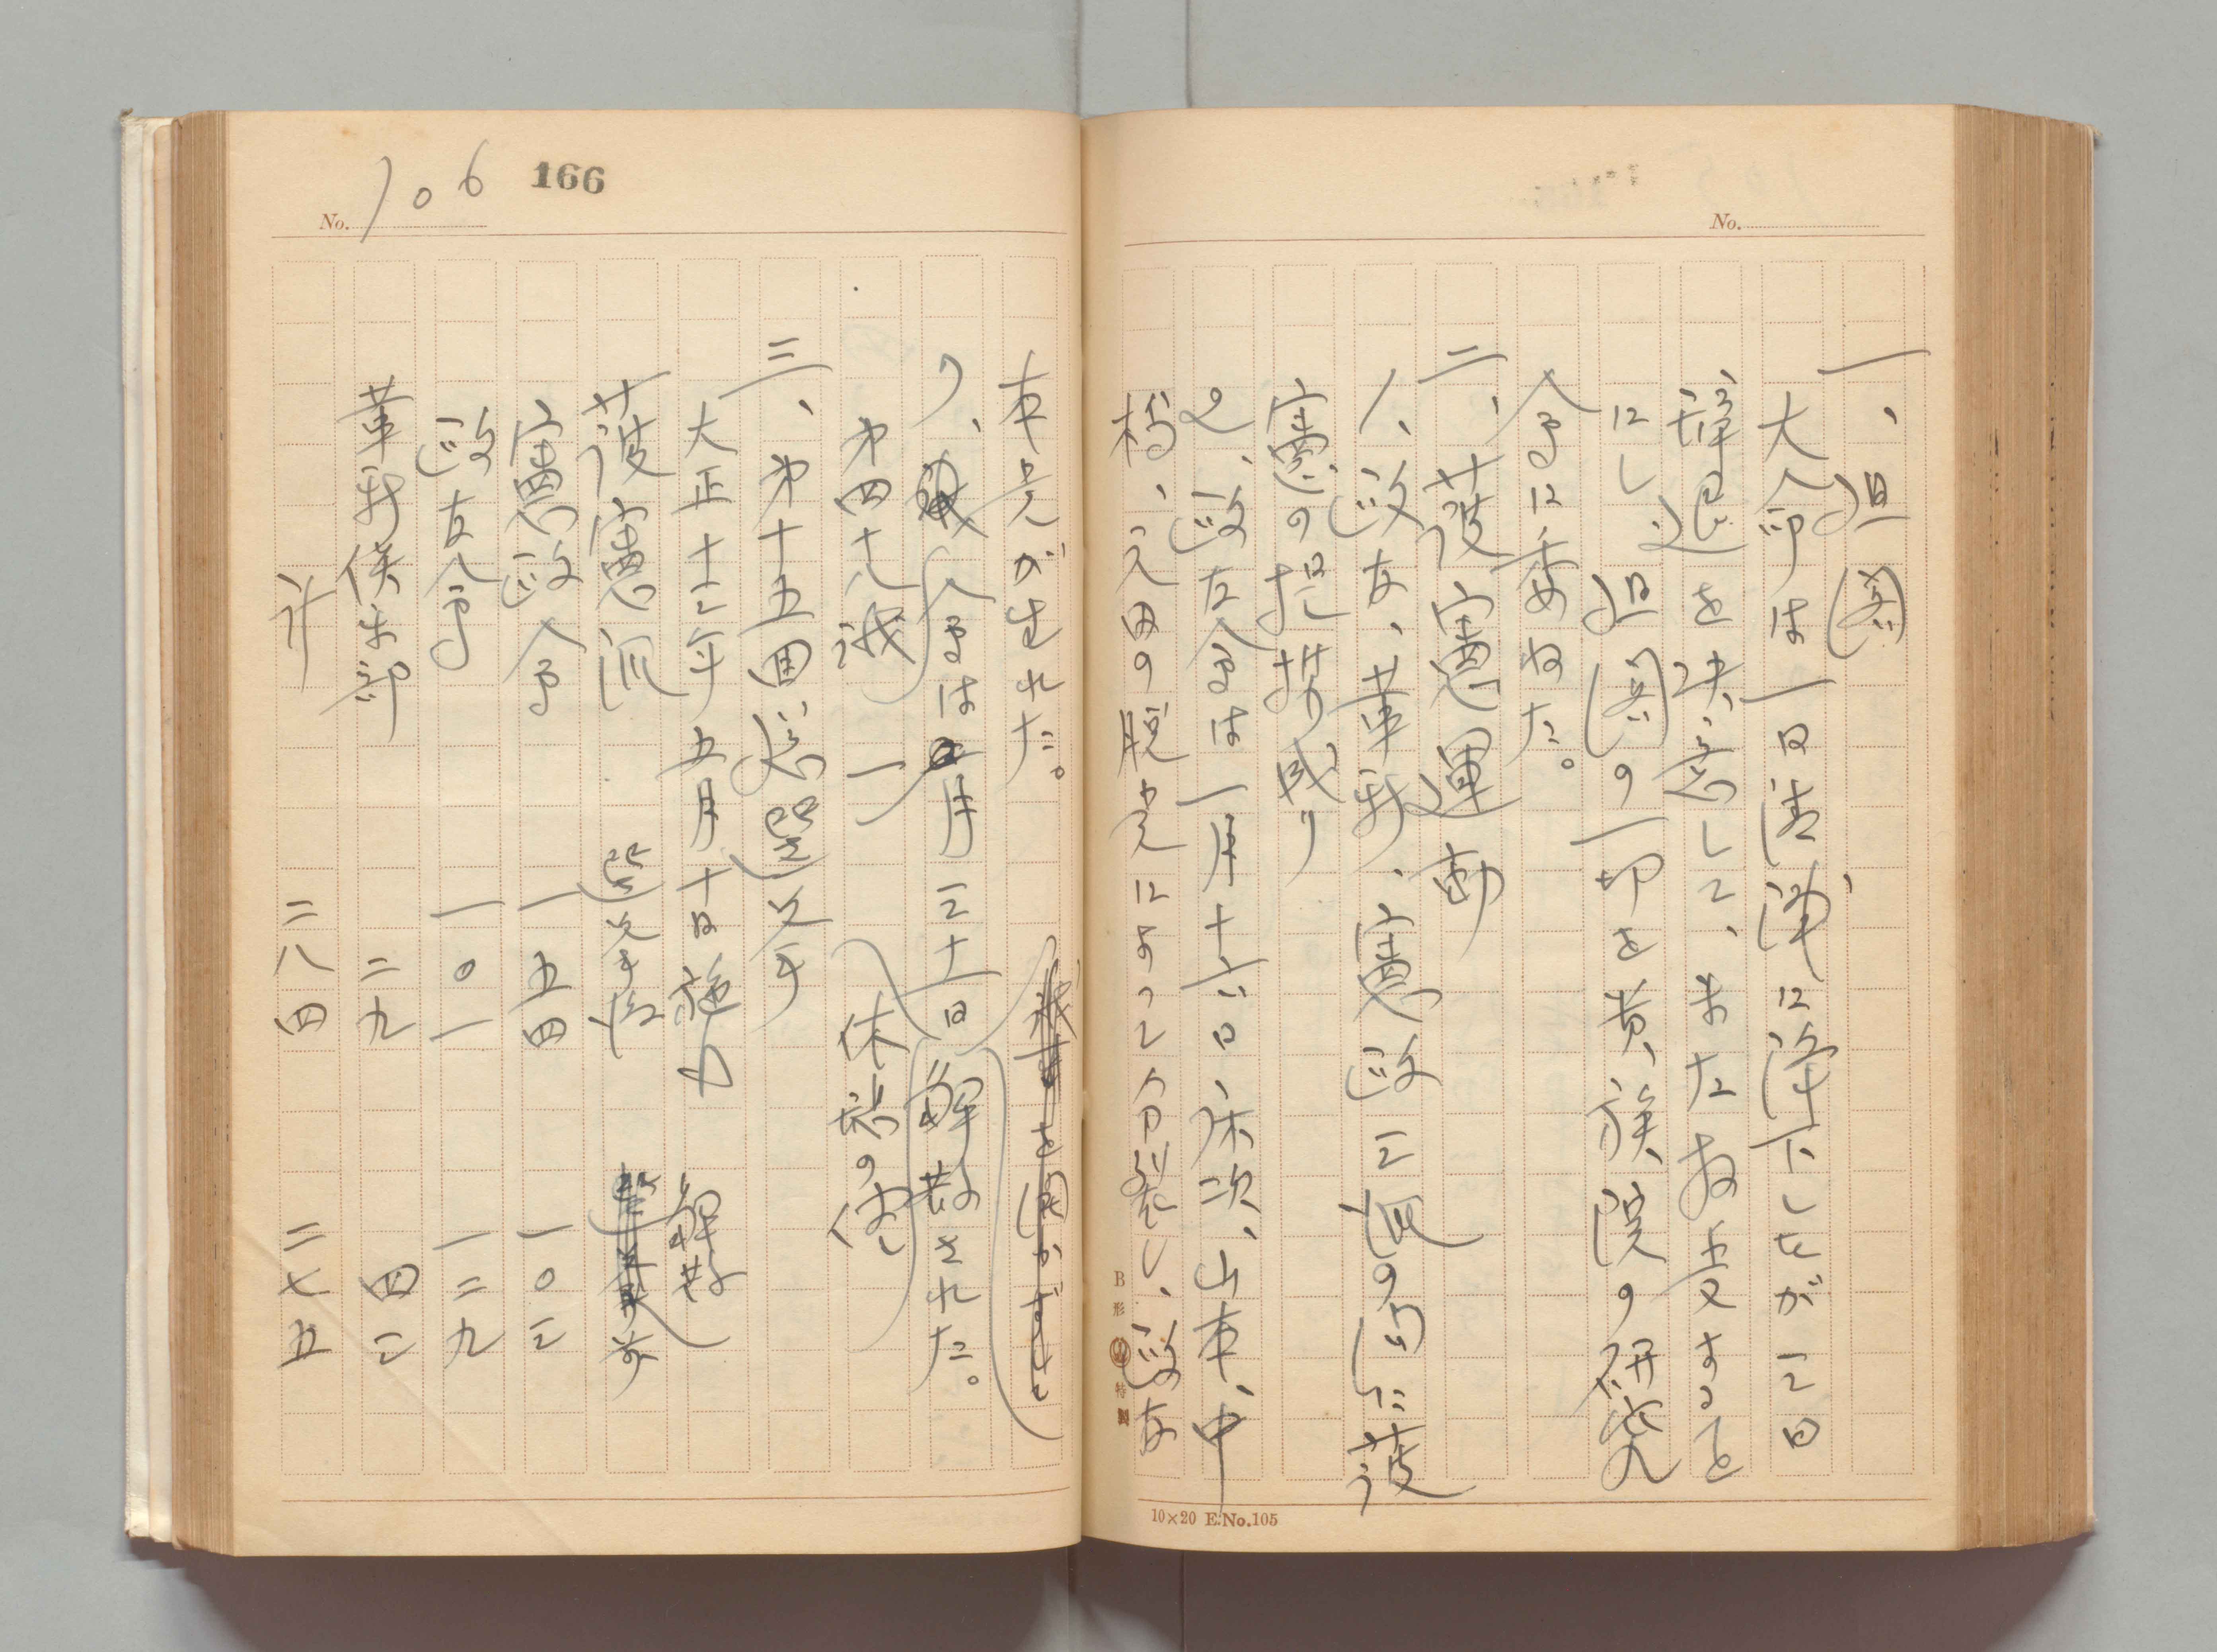 No.
一、組閣
大命は一日清浦に降下したが三日
辞退を決意して、またお受すること
にし組閣の一切を貴族院の研究
会に委ねた。
二、護憲運動
1、政友、革新、憲政三派の間に護
憲の提携成り
2、政友会は一月十六日、床次、山本、中
橋、元田の脱党によつて分裂し、政友
B形 特製
10×20 E.No.105
No. 106 166
本党が生れた。 議事を開かずして
、議会は一月三十一日解散された。
第四十八議 一 休憩の侭
三、第十五回総選挙
大正十三年五月十日施行 解散
護憲派 選挙後 前
憲政会 一五四 一〇三
政友会 一〇一 一二九
革新倶楽部 二九 四三
計 二八四 二七五